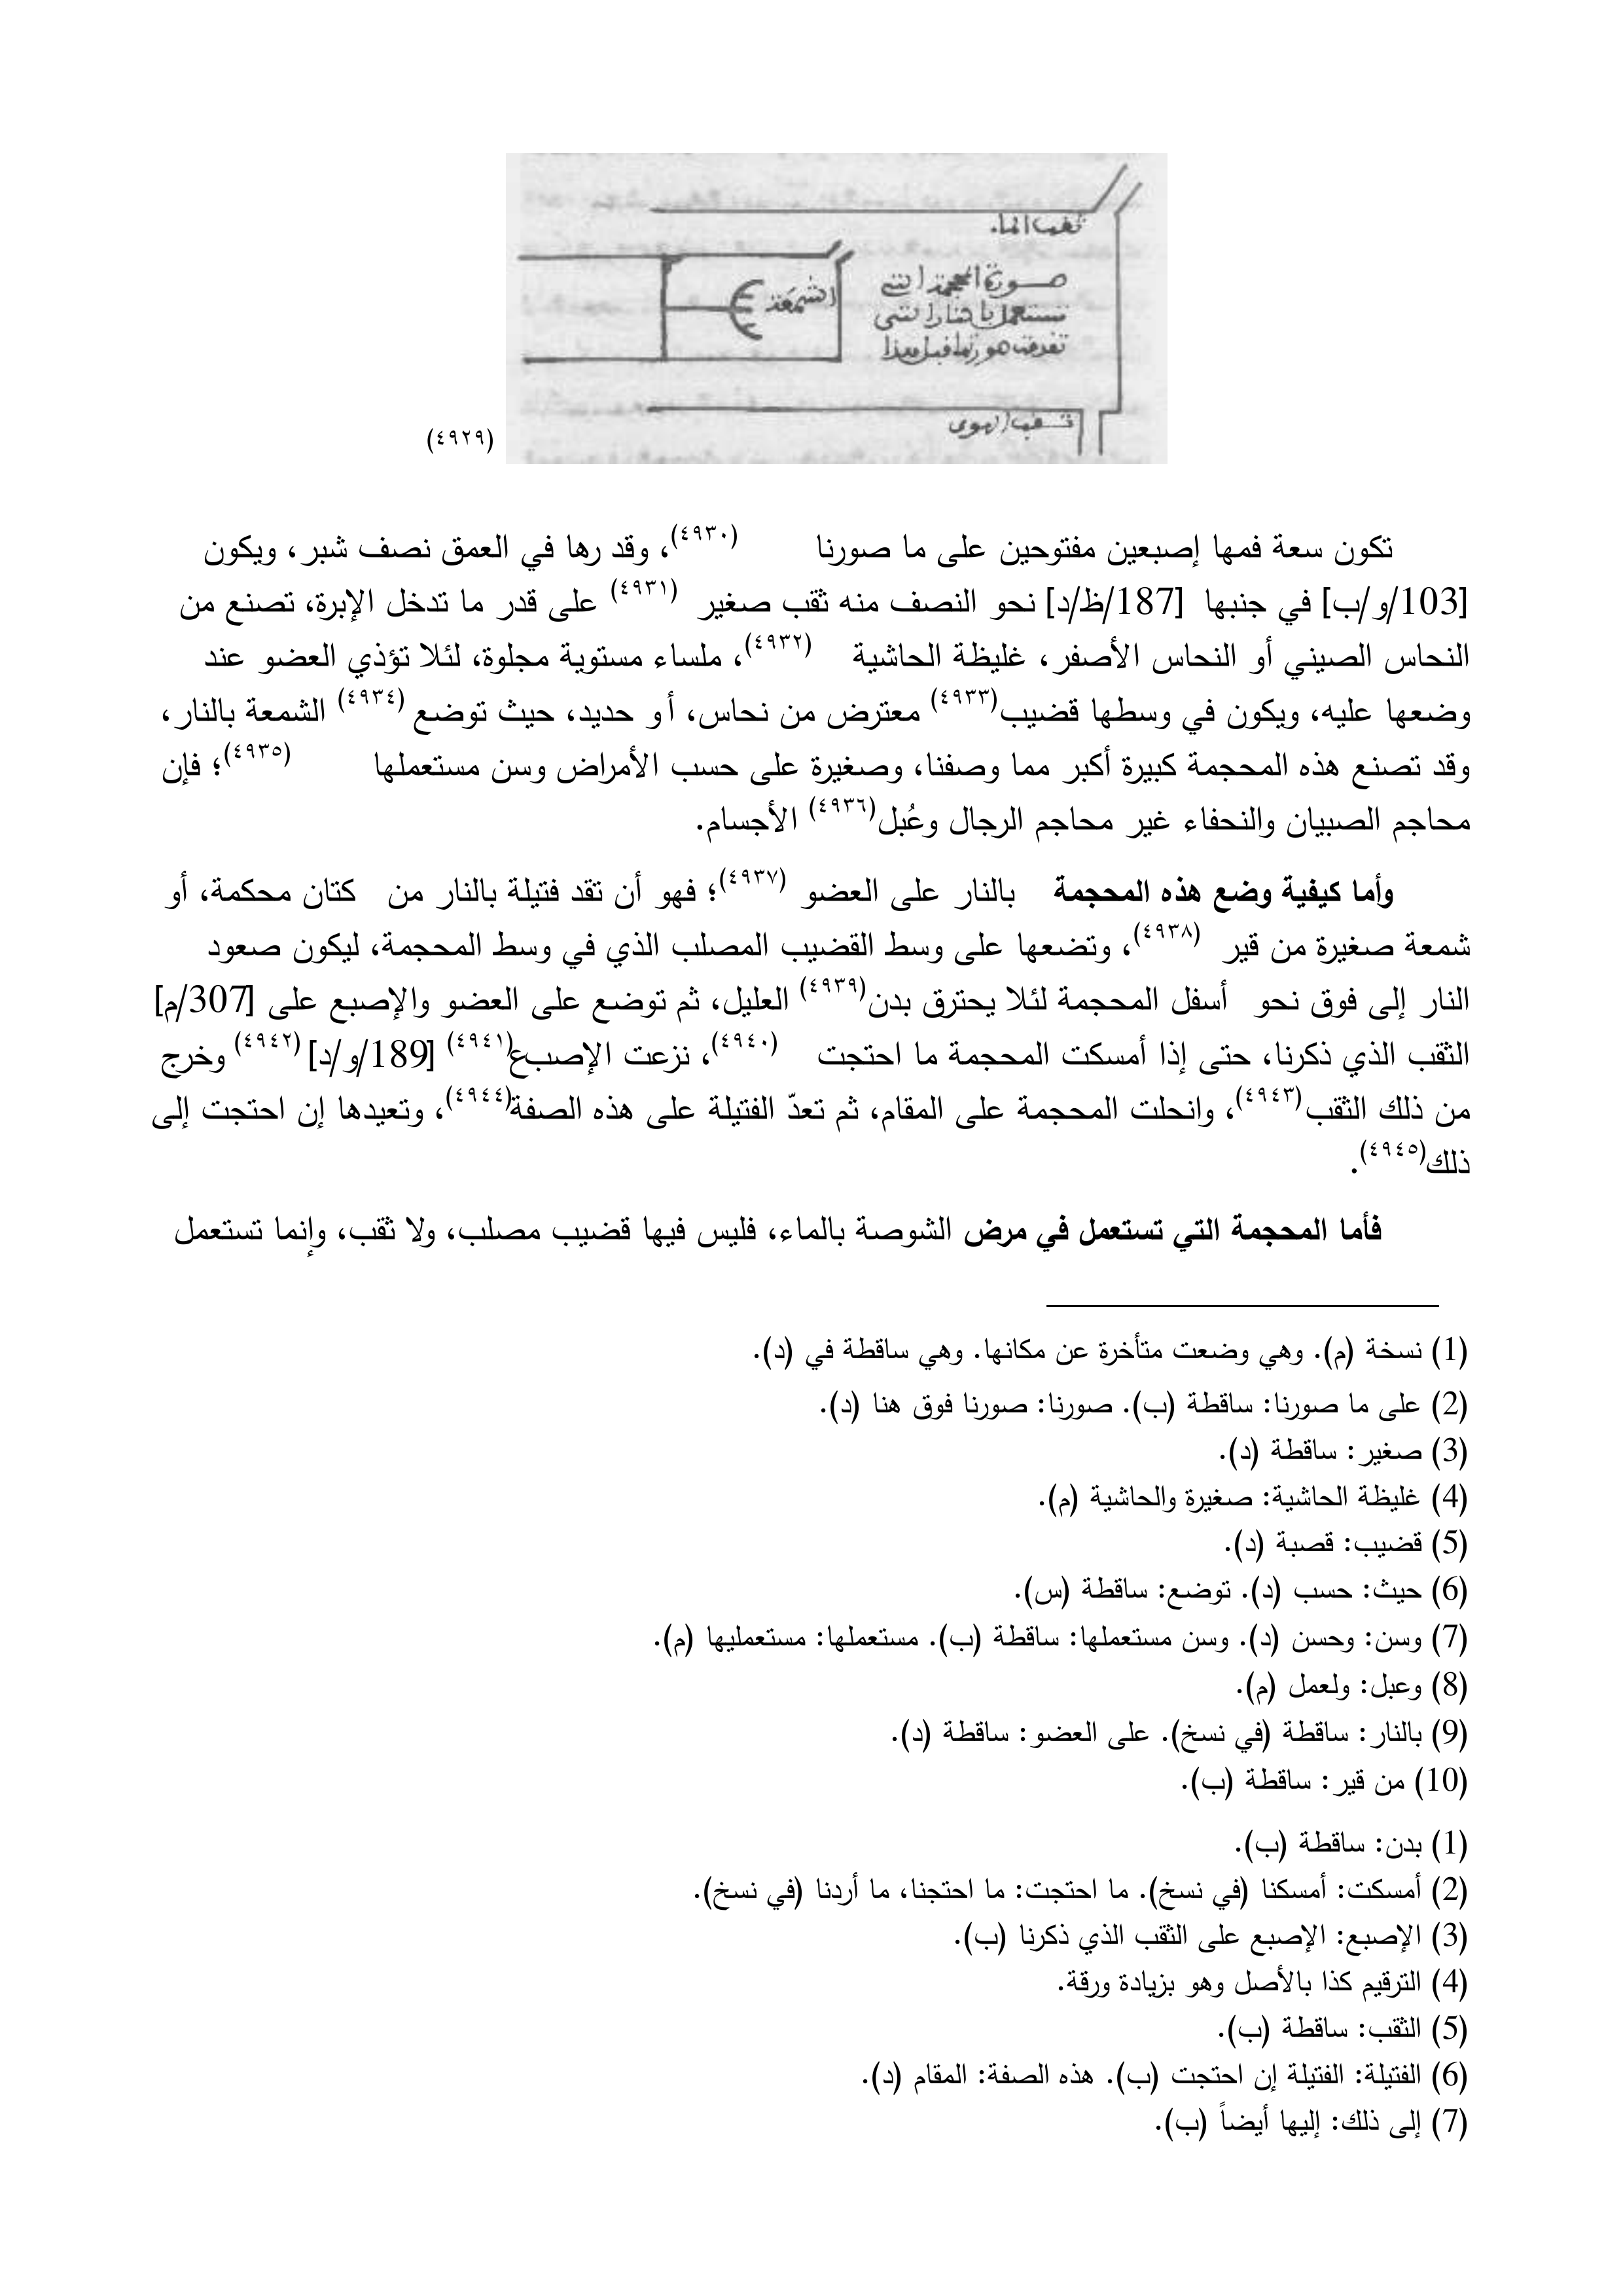 ثقب الما.
صورة المحجمة التي
تستعمل بالنار التي
الشمعة
ثقب الهوى
(٤٩٢٩)
تكون سعة فمها إصبعين مفتوحين على ما صورنا (٤٩٣٠)، وقد رها في العمق نصف شبر، ويكون
[103/و/ب] في جنبها [187/ظ/د] نحو النصف منه ثقب صغير (٤٩٣١) على قدر ما تدخل الإبرة، تصنع من
النحاس الصيني أو النحاس الأصفر، غليظة الحاشية (٤٩٣٢)، ملساء مستوية مجلوة، لئلا تؤذي العضو عند
وضعها عليه، ويكون في وسطها قضيب(٤٩٣٣) معترض من نحاس، أو حديد، حيث توضع (٤٩٣٤) الشمعة بالنار،
وقد تصنع هذه المحجمة كبيرة أكبر مما وصفنا، وصغيرة على حسب الأمراض وسن مستعملها (٤٩٣٥)؛ فإن
محاجم الصبيان والنحفاء غير محاجم الرجال وعُبل(٤٩٣٦) الأجسام.
وأما كيفية وضع هذه المحجمة بالنار على العضو (٤٩٣٧)؛ فهو أن تقد فتيلة بالنار من كتان محكمة، أو
شمعة صغيرة من قير (٤٩٣٨)، وتضعها على وسط القضيب المصلب الذي في وسط المحجمة، ليكون صعود
النار إلى فوق نحو أسفل المحجمة لئلا يحترق بدن(٤٩٣٩) العليل، ثم توضع على العضو والإصبع على [307/م]
الثقب الذي ذكرنا، حتى إذا أمسكت المحجمة ما احتجت (٤٩٤٠)، نزعت الإصبع(٤٩٤١) [189/و/د] (٤٩٤٢) وخرج
من ذلك الثقب(٤٩٤٣)، وانحلت المحجمة على المقام، ثم تعدّ الفتيلة على هذه الصفة(٤٩٤٤)، وتعيدها إن احتجت إلى
ذلك(٤٩٤٥).
فأما المحجمة التي تستعمل في مرض الشوصة بالماء، فليس فيها قضيب مصلب، ولا ثقب، وإنما تستعمل
(1) نسخة (م). وهي وضعت متأخرة عن مكانها. وهي ساقطة في (د).
(2) على ما صورنا: ساقطة (ب). صورنا: صورنا فوق هنا (د).
(3) صغير: ساقطة (د).
(4) غليظة الحاشية: صغيرة والحاشية (م).
(5) قضيب: قصبة (د).
(6) حيث: حسب (د). توضع: ساقطة (س).
(7) وسن: وحسن (د). وسن مستعملها: ساقطة (ب). مستعملها: مستعمليها (م).
(8) وعبل: ولعمل (م).
(9) بالنار: ساقطة (في نسخ). على العضو: ساقطة (د).
(10) من قير: ساقطة (ب).
(1) بدن: ساقطة (ب).
(2) أمسكت: أمسكنا (في نسخ). ما احتجت: ما احتجنا، ما أردنا (في نسخ).
(3) الإصبع: الإصبع على الثقب الذي ذكرنا (ب).
(4) الترقيم كذا بالأصل وهو بزيادة ورقة.
(5) الثقب: ساقطة (ب).
(6) الفتيلة: الفتيلة إن احتجت (ب). هذه الصفة: المقام (د).
(7) إلى ذلك: إليها أيضاً (ب).